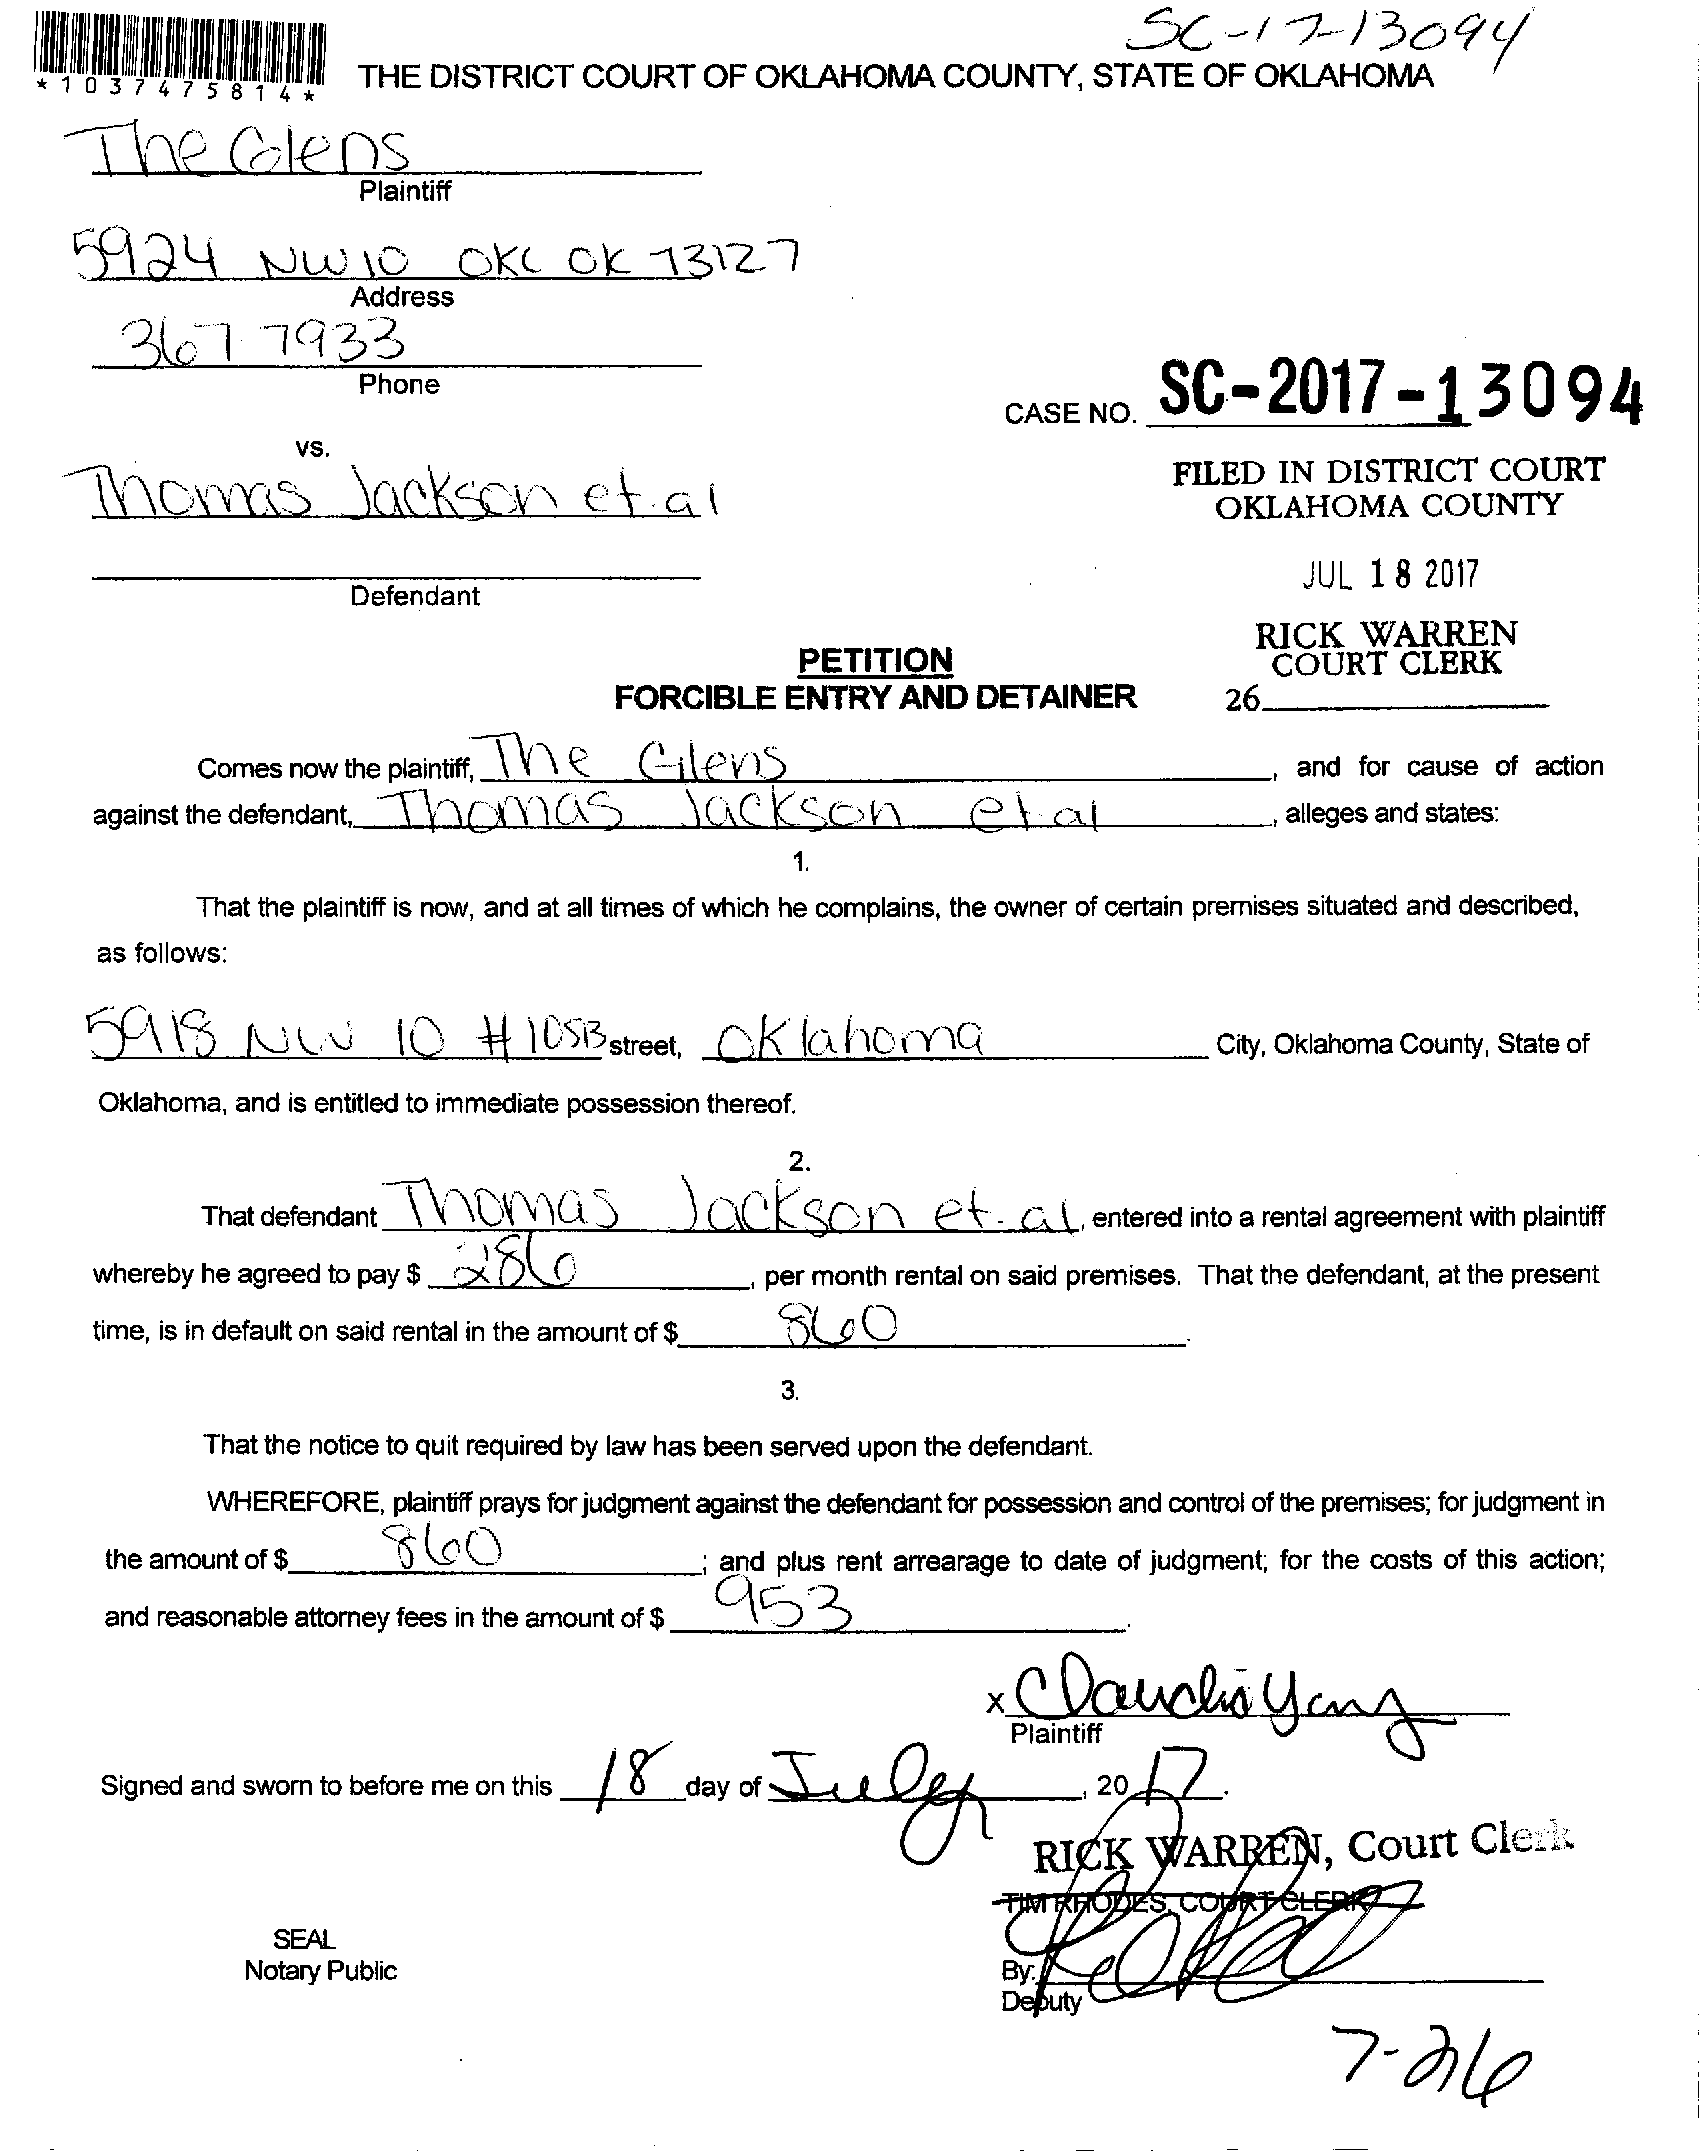 SC-17-13094
*1037475814*
THE DISTRICT COURT OF OKLAHOMA COUNTY, STATE OF OKLAHOMA
The Glens
Plaintiff
5924 NW 10 OKC OK 73127
Address
367 7933
Phone
CASE NO. SC-2017-13094
vs.
FILED IN DISTRICT COURT
OKLAHOMA COUNTY
Thomas Jackson et.al
JUL 18 2017
Defendant
RICK WARREN
COURT CLERK
26
PETITION
FORCIBLE ENTRY AND DETAINER
Comes now the plaintiff, The Glens, and for cause of action
against the defendant, Thomas Jackson et al, alleges and states:
1.
That the plaintiff is now, and at all times of which he complains, the owner of certain premises situated and described,
as follows:
5918 NW 10 #105B street, Oklahoma City, Oklahoma County, State of
Oklahoma, and is entitled to immediate possession thereof.
2.
That defendant Thomas Jackson et.al, entered into a rental agreement with plaintiff
whereby he agreed to pay $ 286, per month rental on said premises. That the defendant, at the present
time, is in default on said rental in the amount of $ 860.
3.
That the notice to quit required by law has been served upon the defendant.
WHEREFORE, plaintiff prays for judgment against the defendant for possession and control of the premises; for judgment in
the amount of $ 860; and plus rent arrearage to date of judgment; for the costs of this action;
and reasonable attorney fees in the amount of $ 953.
x Claudia
Plaintiff
Signed and sworn to before me on this 18 day of July, 2017.
RICK WARREN, Court Clerk
TIM RHODES, COURT CLERK
SEAL
Notary Public
By:
Deputy
7-26